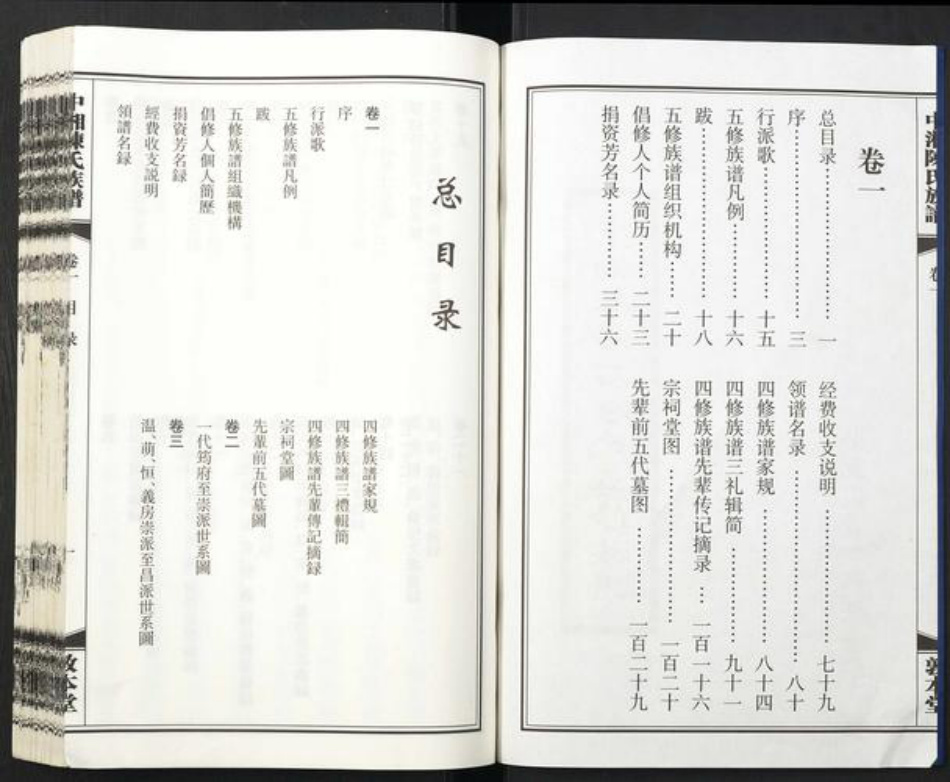 卷一
总目录 一
序 三
行派歌 十五
五修族谱凡例 十六
跋 十八
五修族谱组织机构 二十
倡修人个人简历 二十三
捐资芳名录 三十六
经费收支说明 七十九
领谱名录 八十
四修族谱家规 八十四
四修族谱三礼辑简 九十一
四修族谱先辈传记摘录 一百一十六
宗祠堂图 一百二十
先辈前五代墓图 一百二十九
总目录
卷一
序
行派歌
五修族譜凡例
跋
五修族譜組織機構
倡修人個人简歷
捐資芳名録
經費收支説明
領譜名録
四修族譜家規
四修族譜三禮輯簡
四修族譜先輩傳記摘録
宗祠堂圖
先輩前五代墓圖
卷二
一代筠府至崇派世系圖
卷三
温、萌、恒、義房崇派至昌派世系圖
中湘陳氏族譜
卷一
目录
一
敦本堂